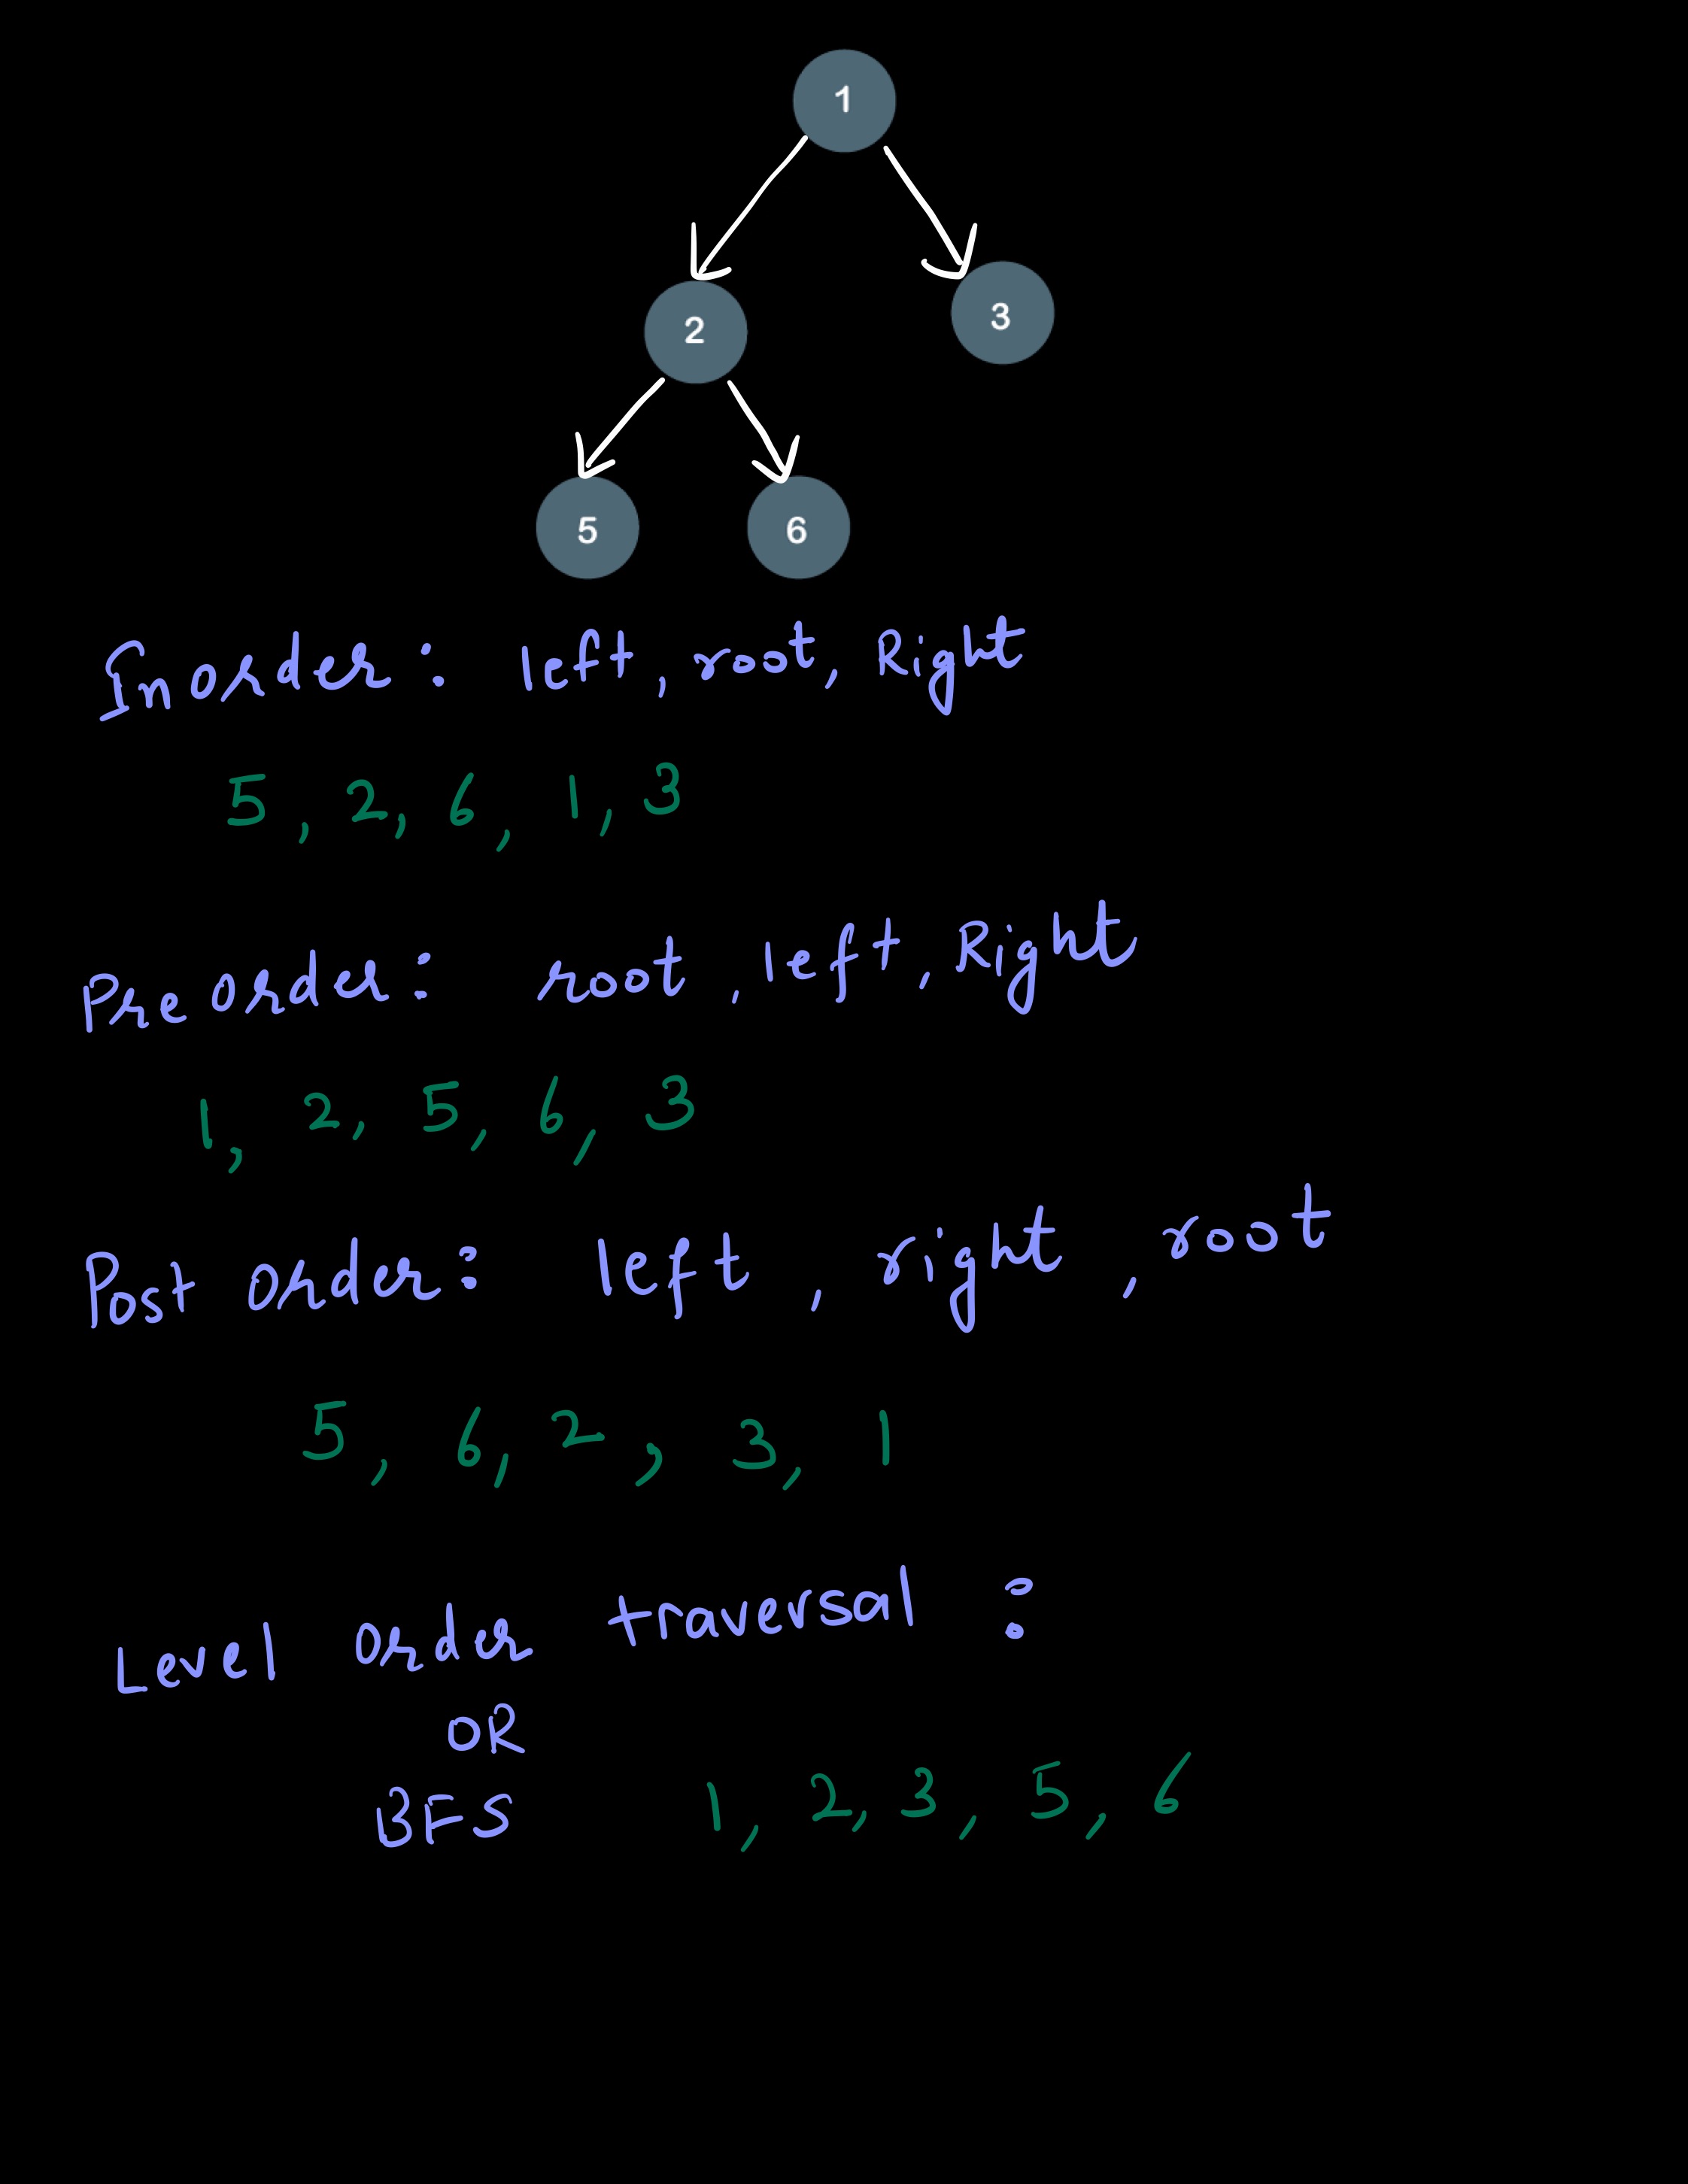 1
2 3
5 6
Inorder: left, root, Right
5, 2, 6, 1, 3
Pre order: root, left, Right
1, 2, 5, 6, 3
Post order: left, right, root
5, 6, 2, 3, 1
Level order traversal :
OR
BFS 1, 2, 3, 5, 6